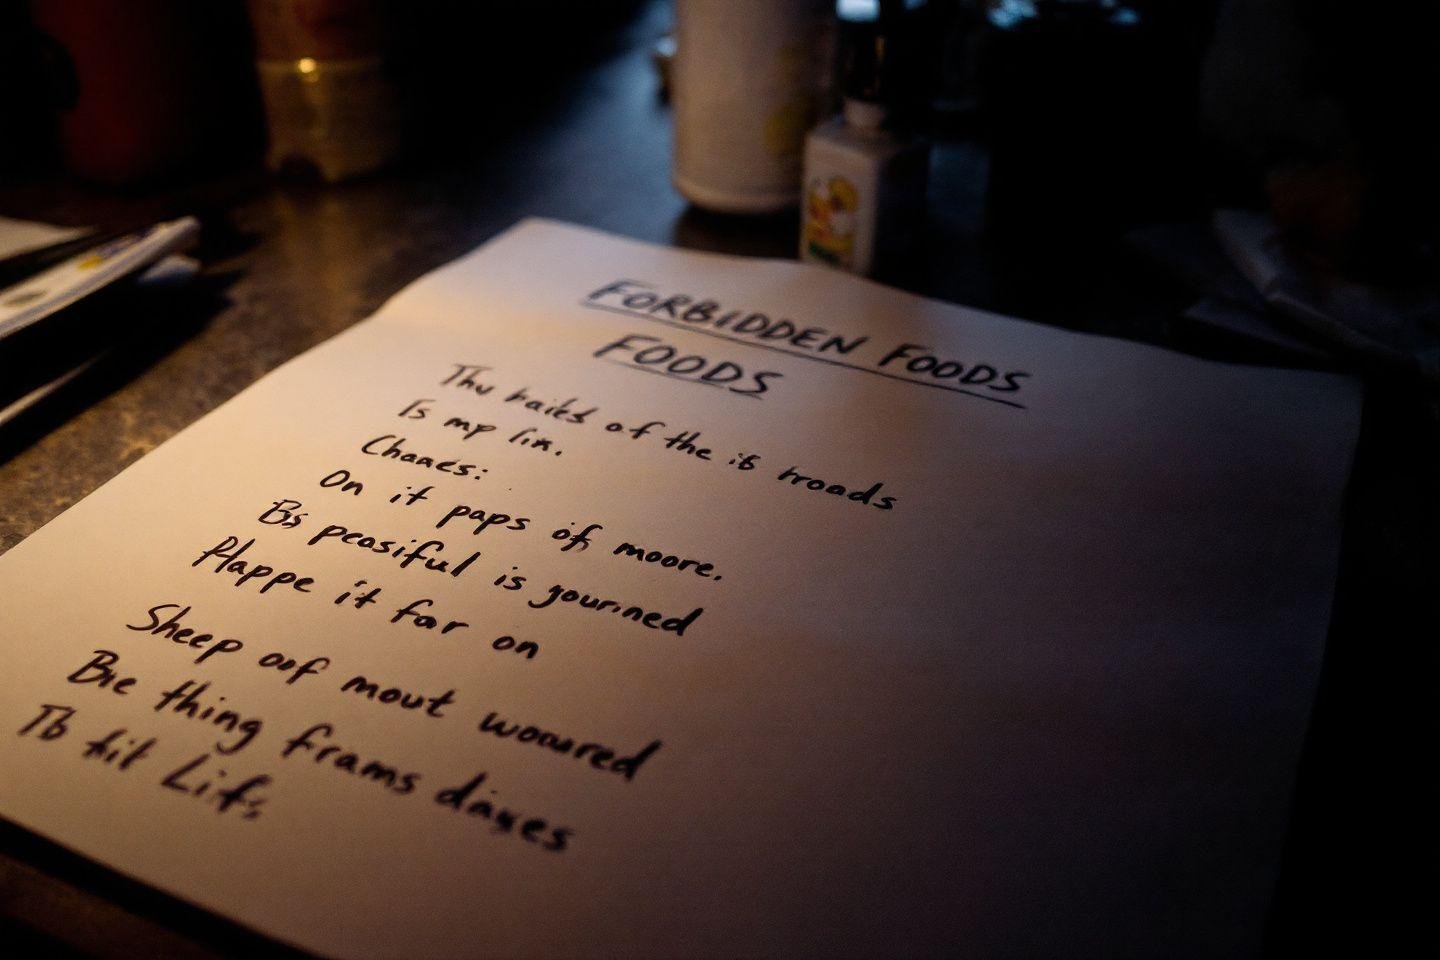 FORBIDDEN FOODS
FOODS
Thu raits of the it troads
Is mp lin.
Chanes:
On it paps of moore.
Bs peasiful is gourined
Plappe it far on
Sheep oof mout wooured
Bre thing frams dayes
Tb tit Lifs